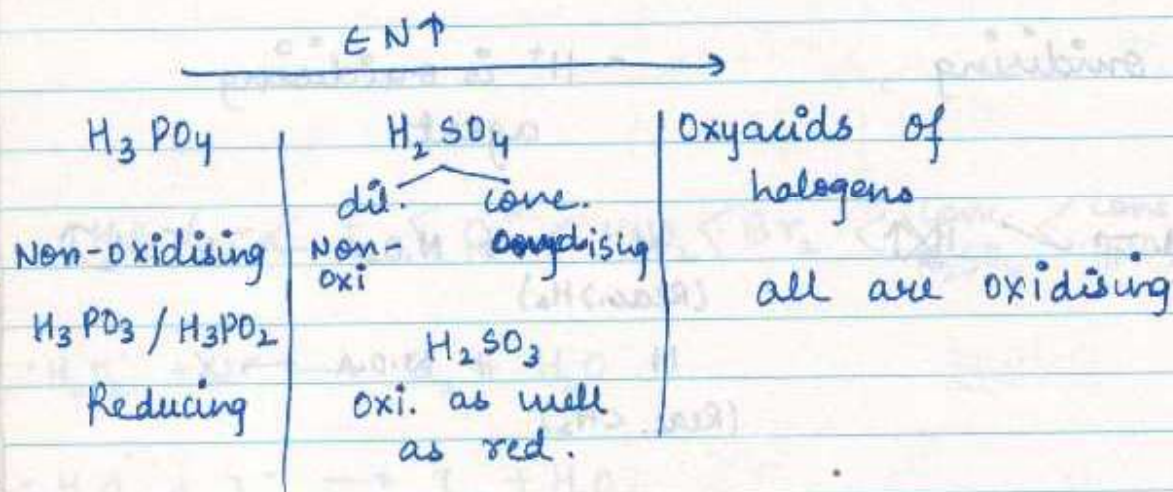 EN↑
H₃PO₄
Non-oxidising
H₃PO₃ / H₃PO₂
Reducing
H₂SO₄
dil. conc.
Non-oxi
H₂SO₃
oxi. as well
as red.
Oxyacids of
halogens
all are oxidising